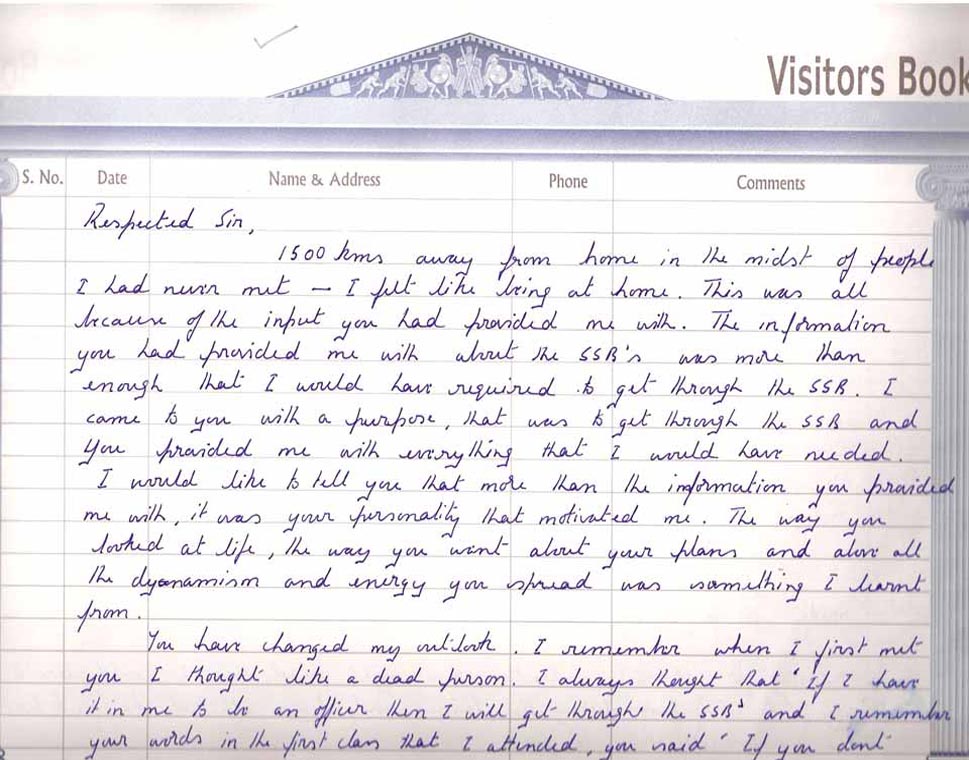 Visitors Book
S. No. Date Name & Address Phone Comments
Respected Sir,
1500 kms away from home in the midst of people
I had never met – I felt like being at home. This was all
because of the input you had provided me with. The information
you had provided me with about the SSB's was more than
enough that I would have required to get through the SSB. I
came to you with a purpose, that was to get through the SSB and
You provided me with everything that I would have needed.
I would like to tell you that more than the information you provided
me with, it was your personality that motivated me. The way you
looked at life, the way you went about your plans and above all
the dyanamism and energy you spread was something I learnt
from.
You have changed my outlook. I remember when I first met
you I thought like a dead person. I always thought that 'If I have
it in me to be an officer then I will get through the SSB' and I remember
your words in the first class that I attended, you said 'If you dont